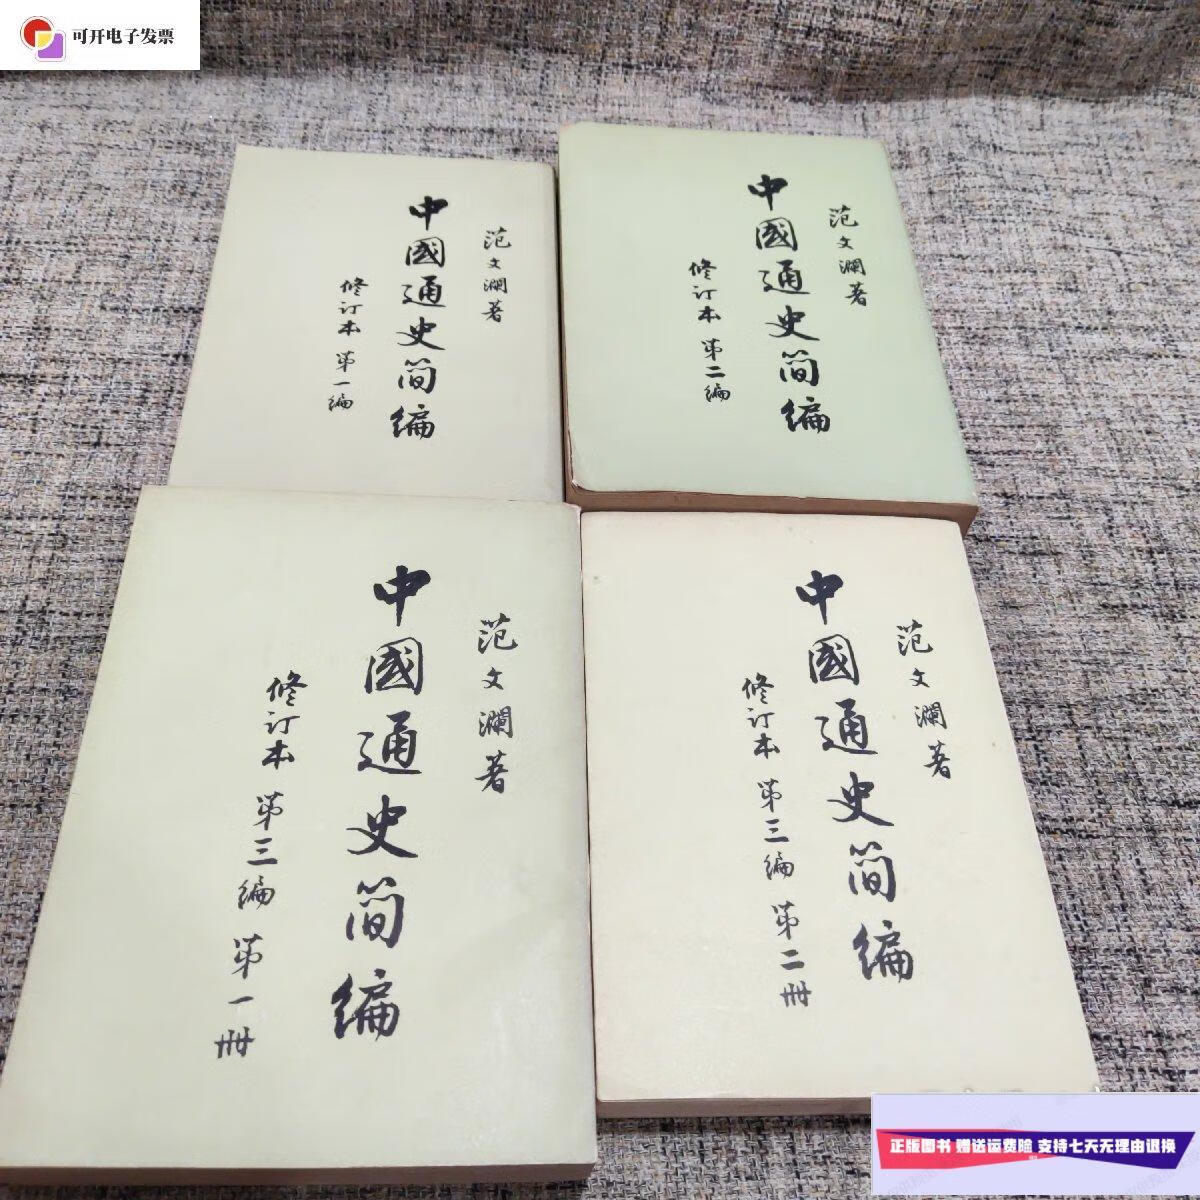 可开电子发票
范文瀾著
中國通史简编
修订本 第一编
范文瀾著
中國通史简编
修订本 第二编
范文瀾著
中國通史简编
修订本 第三编 第一册
范文瀾著
中國通史简编
修订本 第三编 第二册
正版图书 赠送运费险 支持七天无理由退换